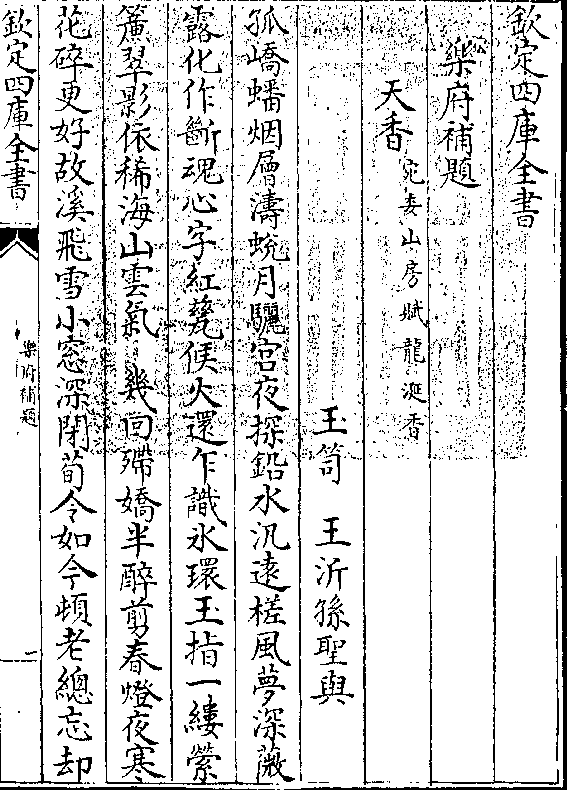 欽定四庫全書
樂府補題
天香 宛委山房賦龍涎香
王笥 王沂孫聖與
孤嶠蟠烟層濤蛻月驪宮夜採鉛水汎遠槎風夢深薇
露化作斷魂心字紅甆候火還乍識氷環玉指一縷縈
簾翠影依稀海山雲氣 幾回殢嬌半醉剪春燈夜寒
花碎更好故溪飛雪小窓深閉荀令如今頓老總忘却
欽定四庫全書
樂府補題
一